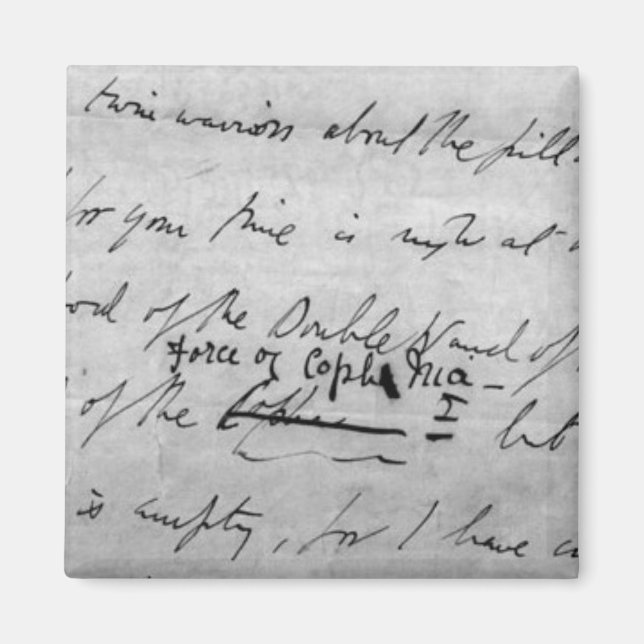 twin warriors about the pill
for your time is nigh at
of the Double Wand of
Force of Coph Nia -
I
of the Coph but
is empty, for I have